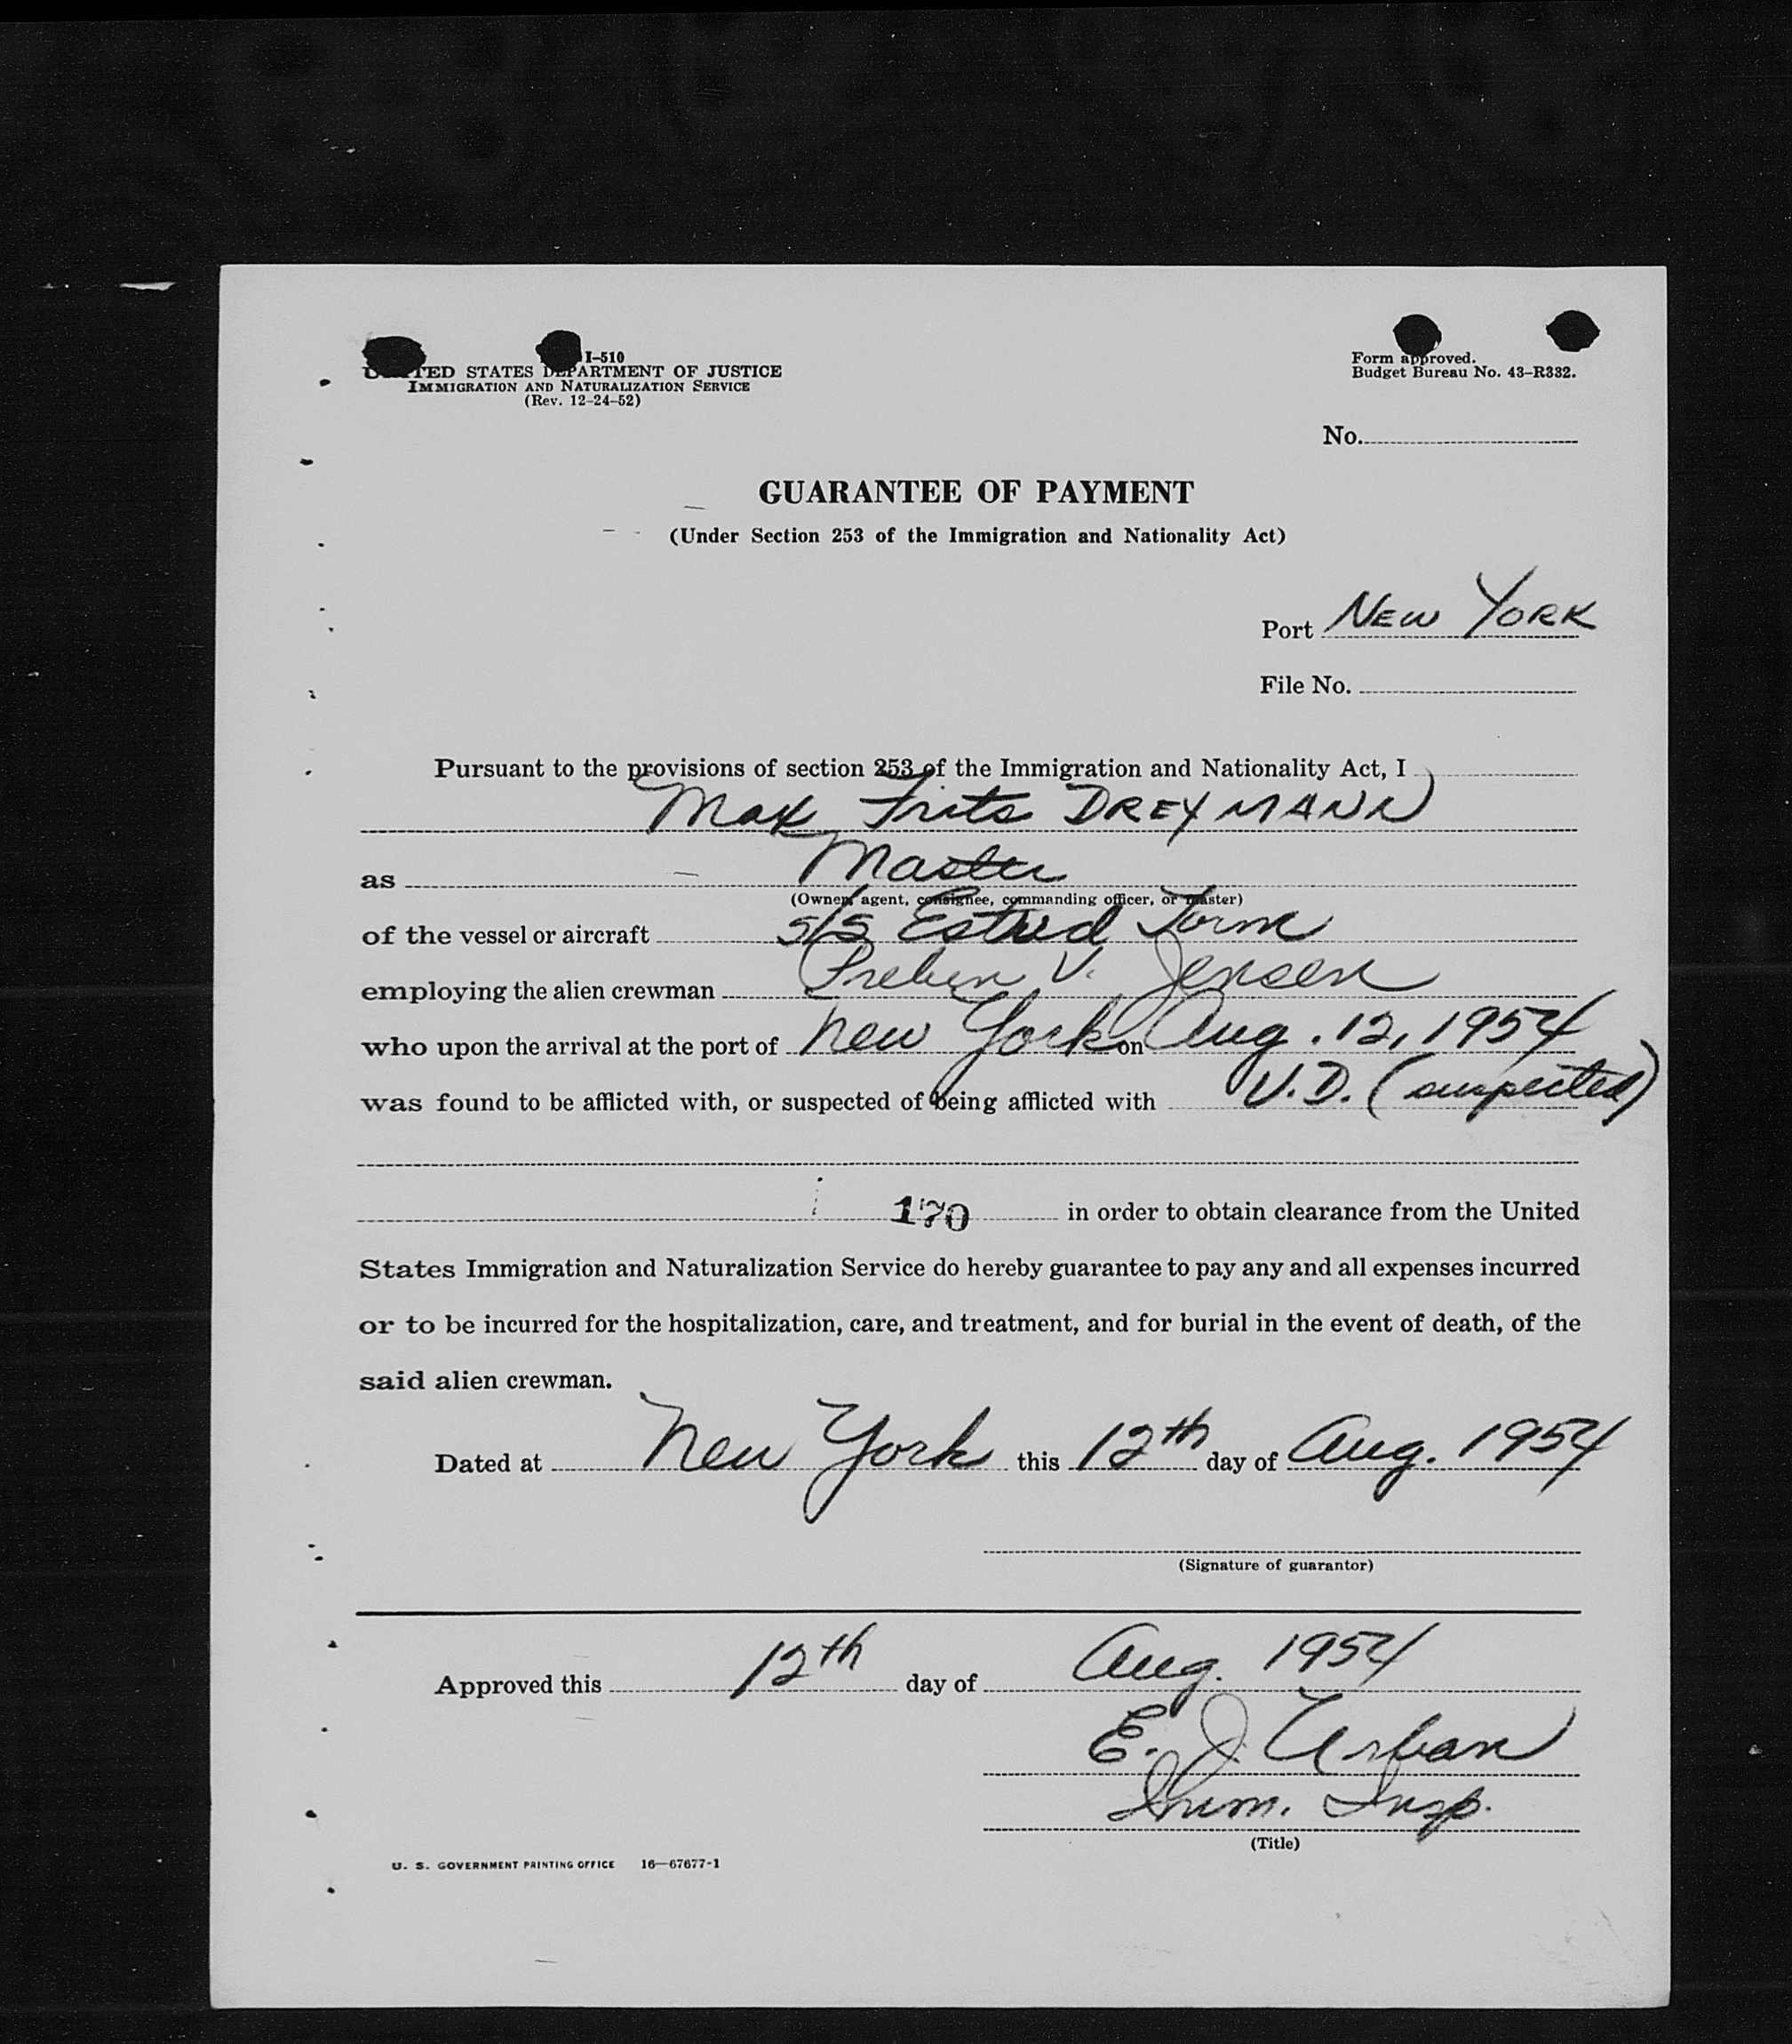 I-510
UNITED STATES DEPARTMENT OF JUSTICE
IMMIGRATION AND NATURALIZATION SERVICE
(Rev. 12-24-52)
Form approved.
Budget Bureau No. 43-R332.
No.
GUARANTEE OF PAYMENT
(Under Section 253 of the Immigration and Nationality Act)
Port NEW YORK
File No.
Pursuant to the provisions of section 253 of the Immigration and Nationality Act, I
Max Frits DREYMANN
as Master
(Owner, agent, consignee, commanding officer, or master)
of the vessel or aircraft S/S Estrid Torm
employing the alien crewman Preben V. Jensen
who upon the arrival at the port of New York on Aug. 12, 1954
was found to be afflicted with, or suspected of being afflicted with V.D. (suspected)
170 in order to obtain clearance from the United
States Immigration and Naturalization Service do hereby guarantee to pay any and all expenses incurred
or to be incurred for the hospitalization, care, and treatment, and for burial in the event of death, of the
said alien crewman.
Dated at New York this 12th day of Aug. 1954
(Signature of guarantor)
Approved this 12th day of Aug. 1954
E. J. Urban
Imm. Insp.
(Title)
U. S. GOVERNMENT PRINTING OFFICE 16—67677-1